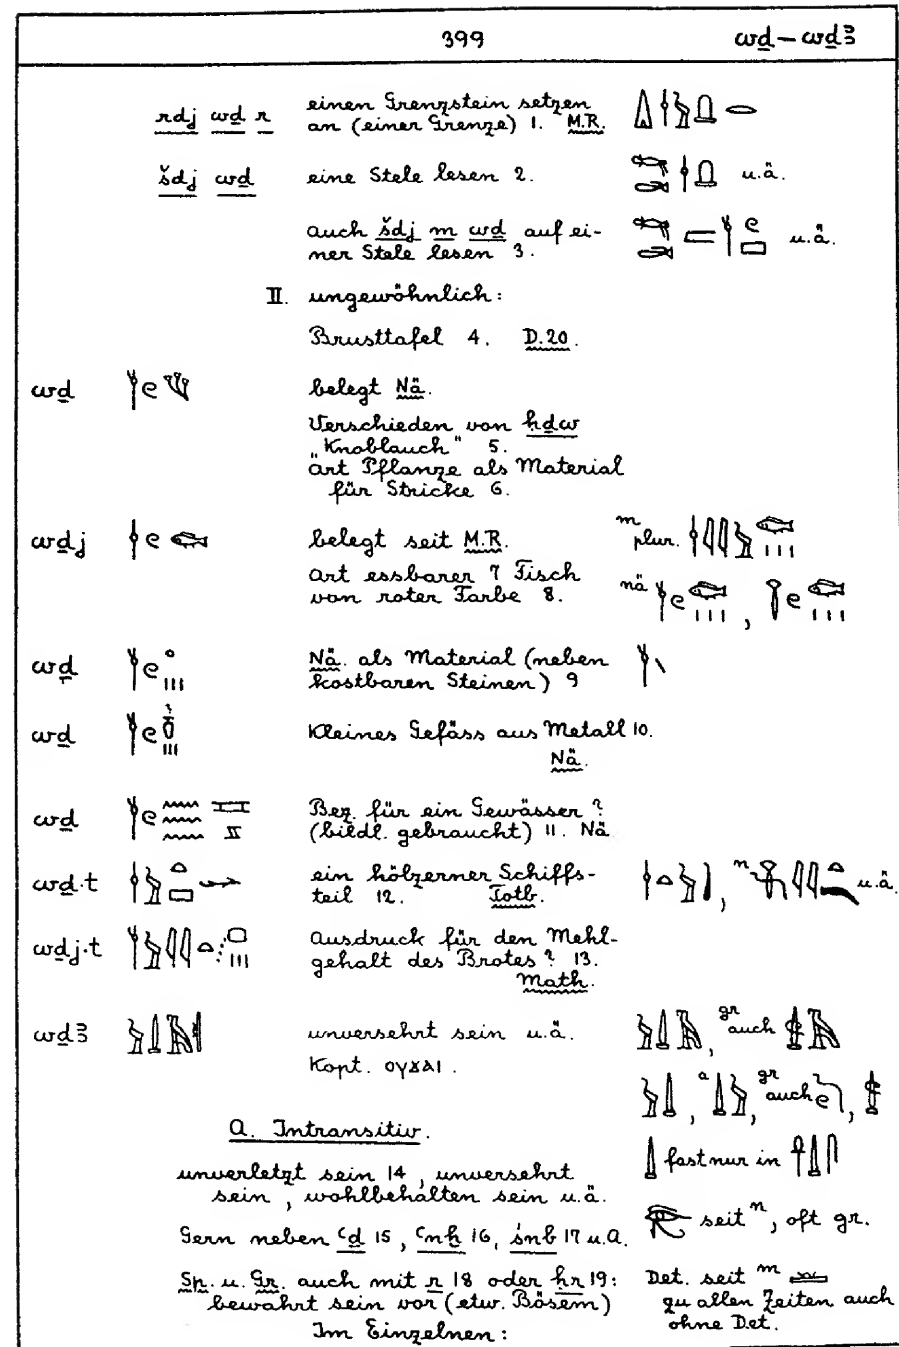 399 wḏ — wḏꜣ
rdj wḏ r einen Grenzstein setzen
an (einer Grenze) 1. M.R.
šdj wḏ eine Stele lesen 2. u.ä.
auch šdj m wḏ auf ei-
ner Stele lesen 3. u.ä.
II. ungewöhnlich:
Brusttafel 4. D.20.
wḏ belegt Nä.
Verschieden von ḥḏw
"Knoblauch" 5.
Art Pflanze als Material
für Stricke 6.
wḏj belegt seit M.R. m plur.
Art essbarer 7 Fisch
von roter Farbe 8. nä ,
wḏ Nä. als Material (neben
kostbaren Steinen) 9
wḏ Kleines Gefäss aus Metall 10.
Nä.
wḏ Bez. für ein Gewässer?
(bildl. gebraucht) 11. Nä
wḏ·t ein hölzerner Schiffs-
teil 12. Totb. , n u.ä.
wḏj·t Ausdruck für den Mehl-
gehalt des Brotes? 13.
Math.
wḏꜣ unversehrt sein u.ä. , gr auch
Kopt. ⲟⲩϫⲁⲓ.
, a , gr auch ,
A. Intransitiv.
unverletzt sein 14, unversehrt fast nur in
sein, wohlbehalten sein u.ä.
seit n, oft gr.
Gern neben ꜥḏ 15, ꜥnḫ 16, śnb 17 u.a.
Sp. u. Gr. auch mit r 18 oder ḥr 19: Det. seit m
bewahrt sein vor (etw. Bösem) zu allen Zeiten auch
ohne Det.
Im Einzelnen: